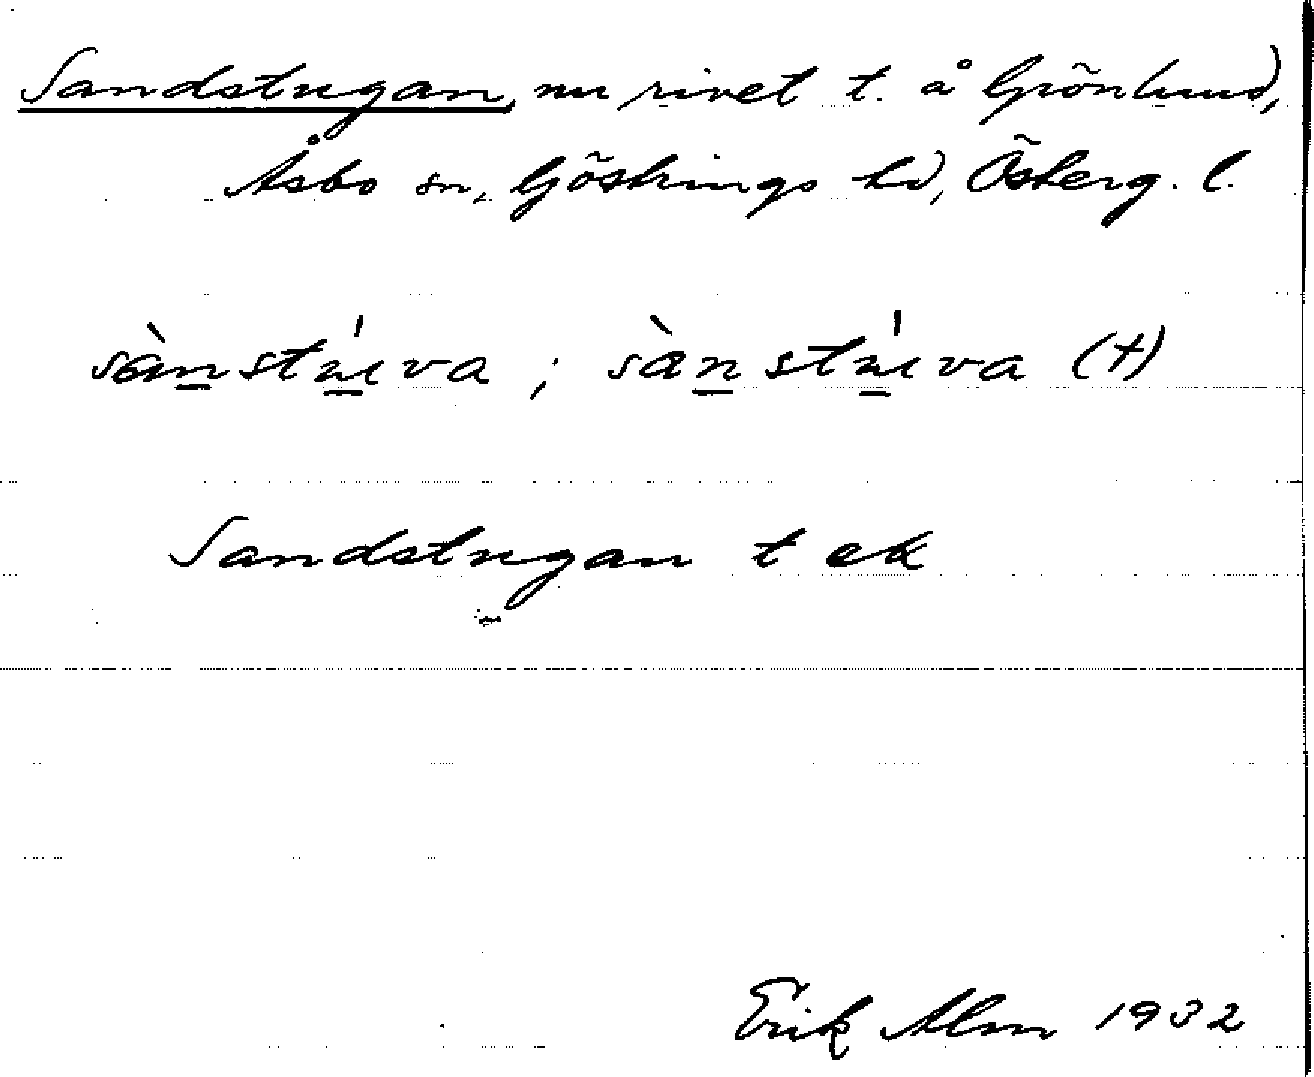 Sandstugan, nu rivet t. å Grönlund,
Åsbo sn, Göstrings hd, Österg. l.
sànstúva ; sànstúva (t)
Sandstugan t ek
Erik Alm 1932